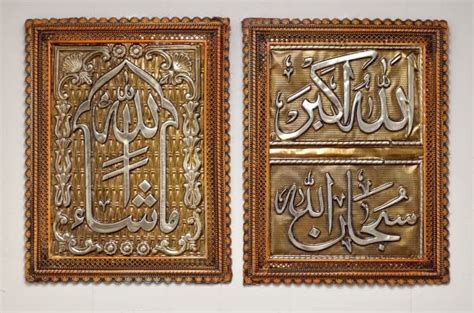 ما شاء الله
الله أكبر
سبحان الله